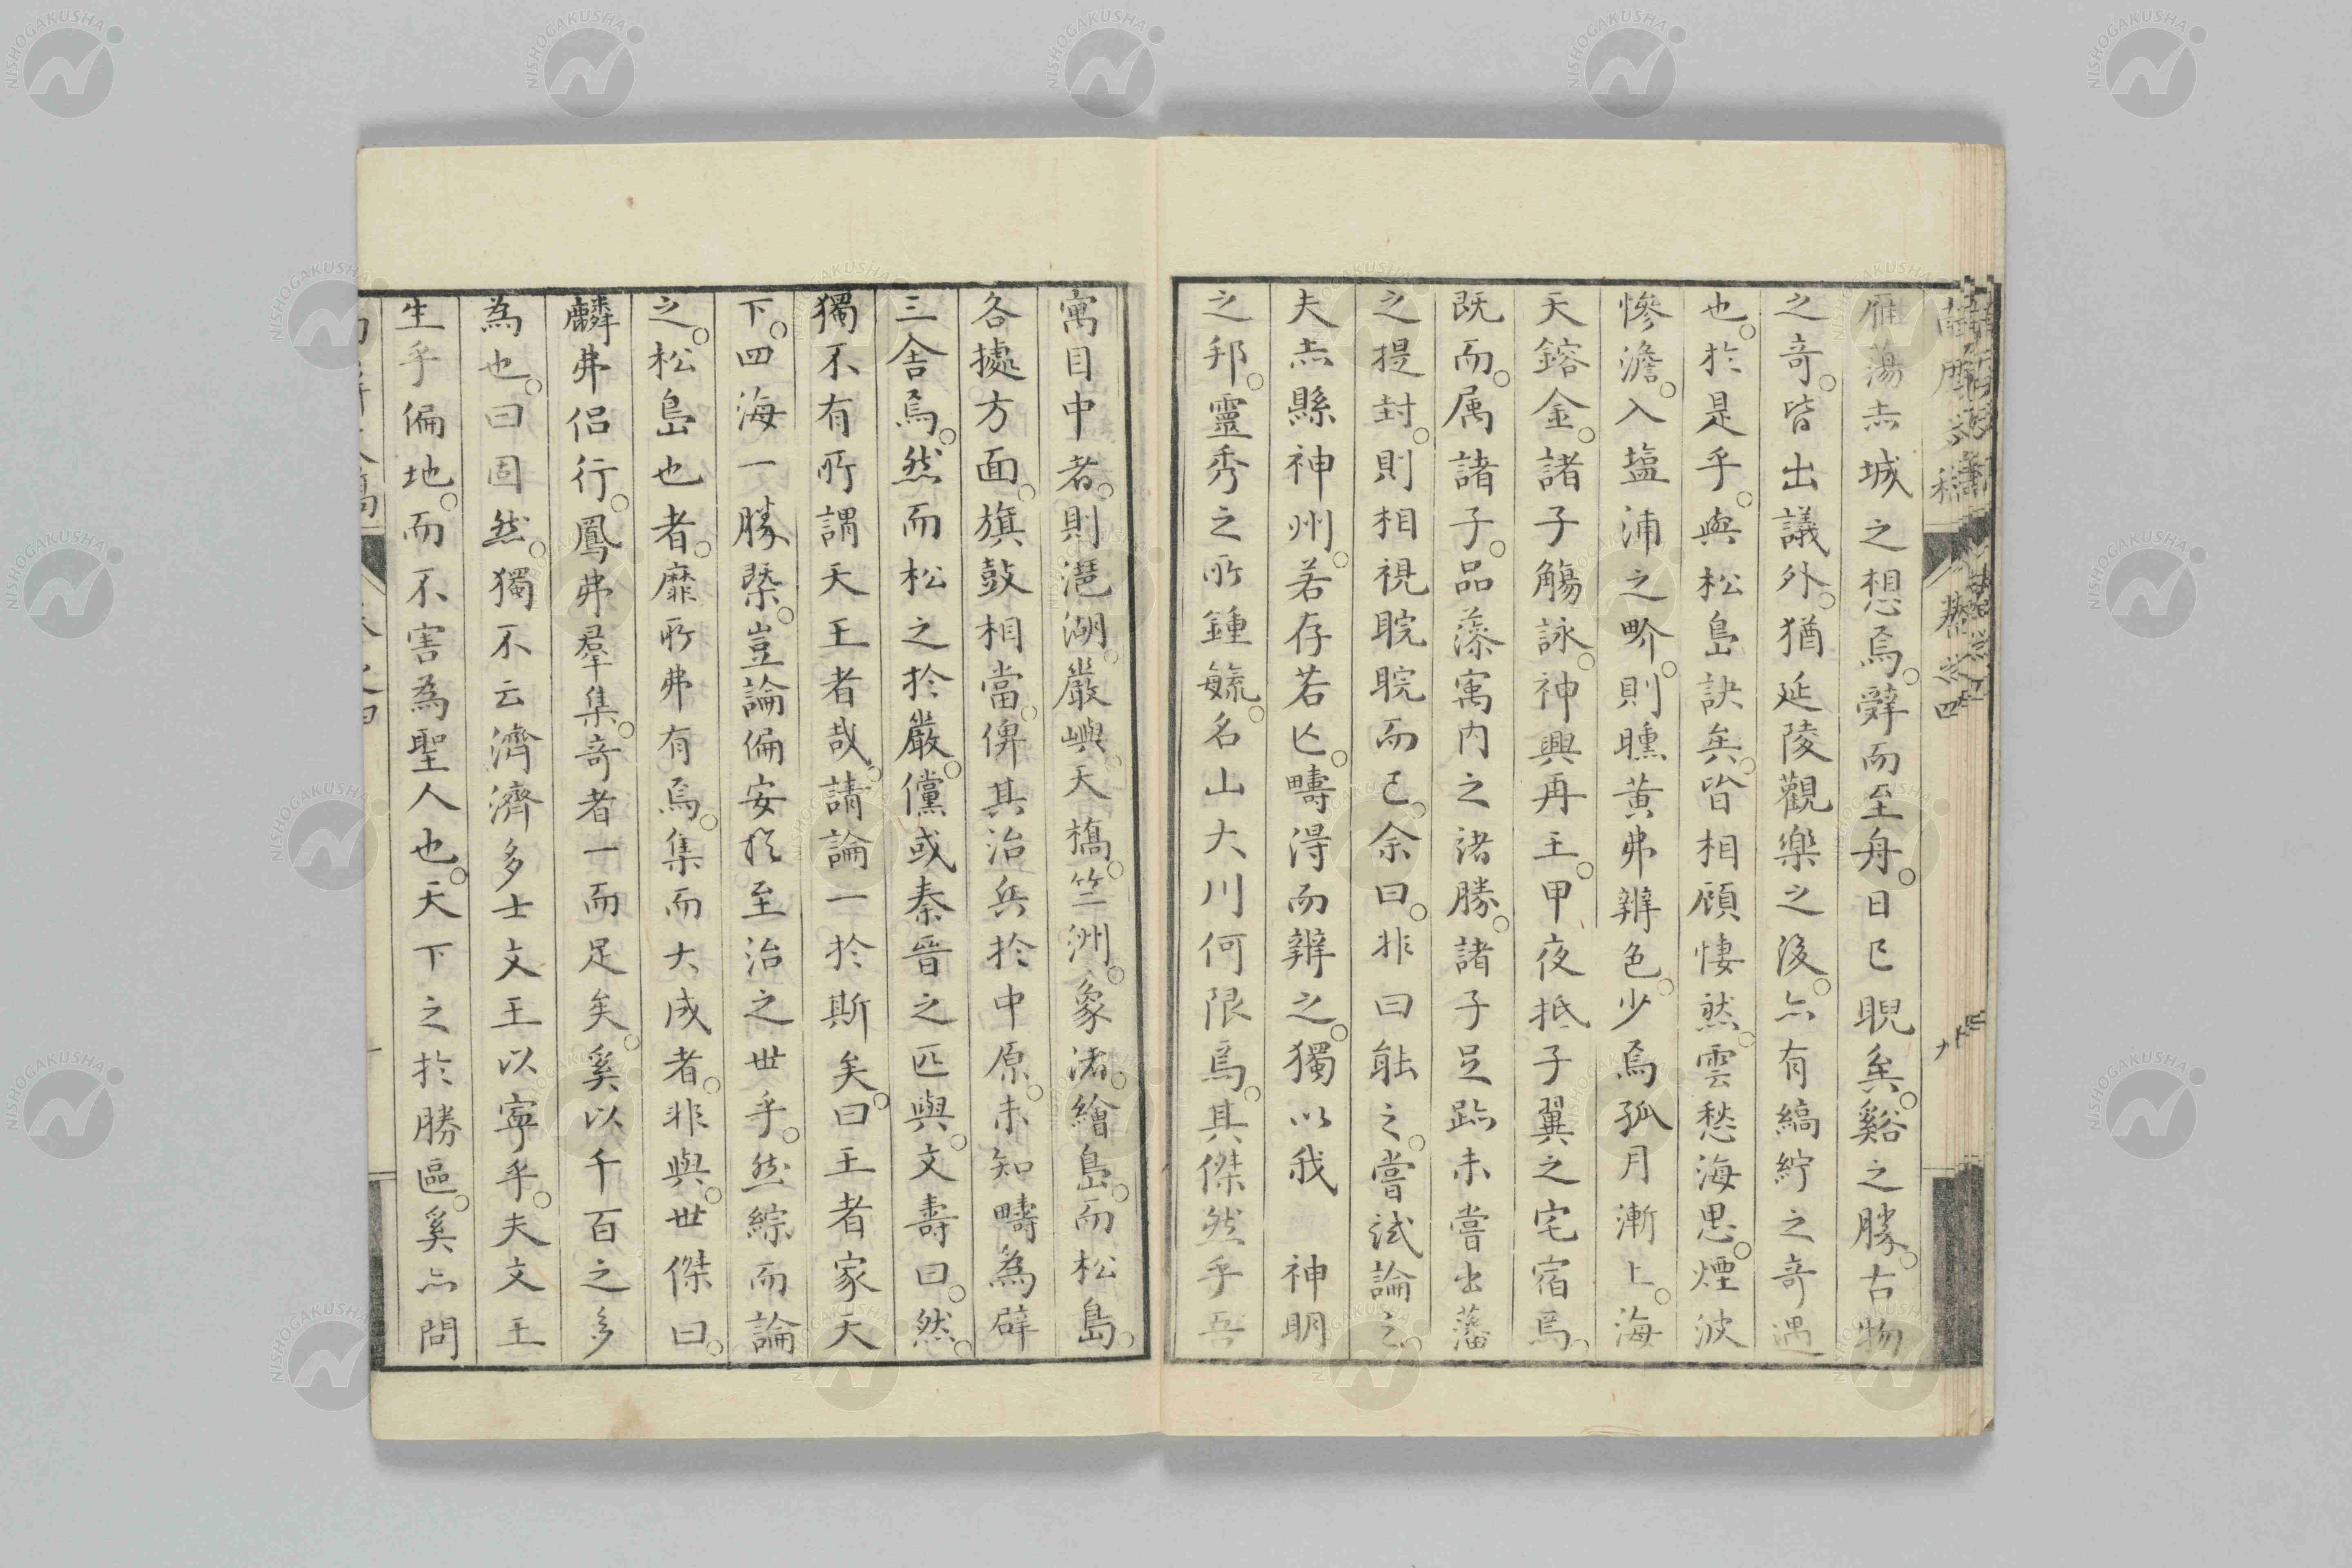 雁蕩赤城之想焉。辤而至舟。日已睨矣。谿之勝。古物
之竒。皆出議外。猶延陵觀樂之後。亦有縞紵之竒遇
也。於是乎。與松島訣矣。皆相顧悽然。雲愁海思。煙波
慘澹。入塩浦之畍。則曛黄弗辨色。少焉孤月漸上。海
天鎔金。諸子觴詠。神興再王。甲夜抵子翼之宅宿焉。
既而。属諸子。品藻寓内之諸勝。諸子足跡未嘗出藩
之提封。則相視睆睆而已。余曰。非曰能之。嘗試論之。
夫赤縣神州。若存若亾。疇得而辨之。獨以我 神明
之邦。靈秀之所鍾毓。名山大川何限焉。其傑然乎吾
寓目中者。則琶湖。嚴嶼。天橋。竺洲。象潟。繪島。而松島。
各據方面。旗鼓相當。俾其治兵於中原。未知疇為辟
三舎焉。然而松之於嚴。儻或秦晉之匹與。文壽曰。然。
獨不有所謂天王者哉。請論一於斯矣。曰王者家天
下。四海一勝槩。豈論偏安於至治之世乎。然綜而論
之。松島也者。靡所弗有焉。集而大成者。非與。世傑曰。
麟弗侣行。鳳弗羣集。竒者一而足矣。奚以千百之多
為也。曰固然。獨不云濟濟多士文王以寧乎。夫文王
生乎偏地。而不害為聖人也。天下之於勝區。奚亦問
NISHOGAKUSHA